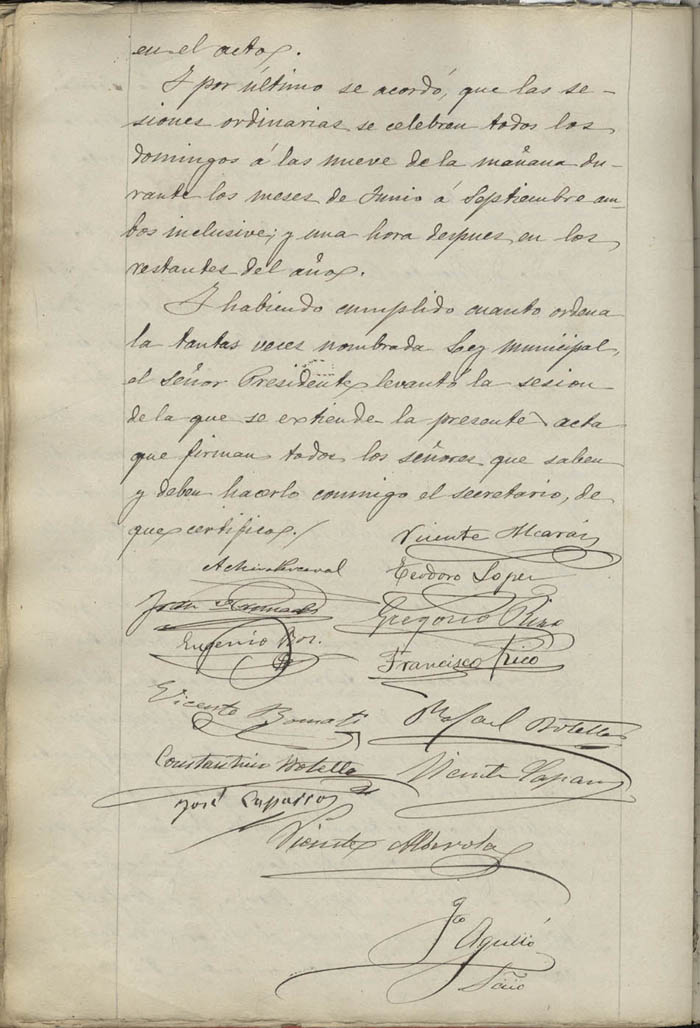 en el acto.
Y por último se acordó, que las se-
siones ordinarias se celebren todos los
domingos á las nueve de la mañana du-
rante los meses de Junio á Septiembre am-
bos inclusive; y una hora despues en los
restantes del año.
Y habiendo cumplido cuanto ordena
la tantas veces nombrada Ley Municipal,
el Señor Presidente levantó la sesion
de la que se extiende la presente acta
que firman todos los señores que saben
y deben hacerlo conmigo el secretario, de
que certifico.
Vicente Alcaráz
Teodoro Lopez
Gregorio Rizo
Eugenio Bor.
Francisco Rico
Vicente Bernati
Rafael Botella
Constantino Botella
Vicente
José Caparros
Vicente Alberola
Fco Agulló
Srio